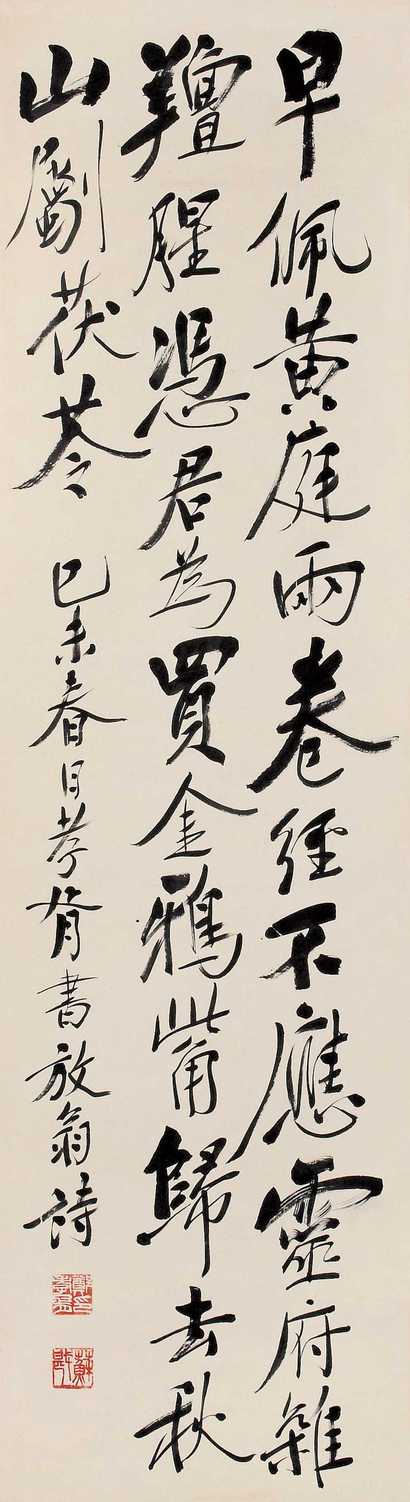 早佩黄庭兩卷經不應靈府雜
羶腥憑君為買金鴉觜歸去秋
山劚茯苓
己未春日孝胥書放翁詩